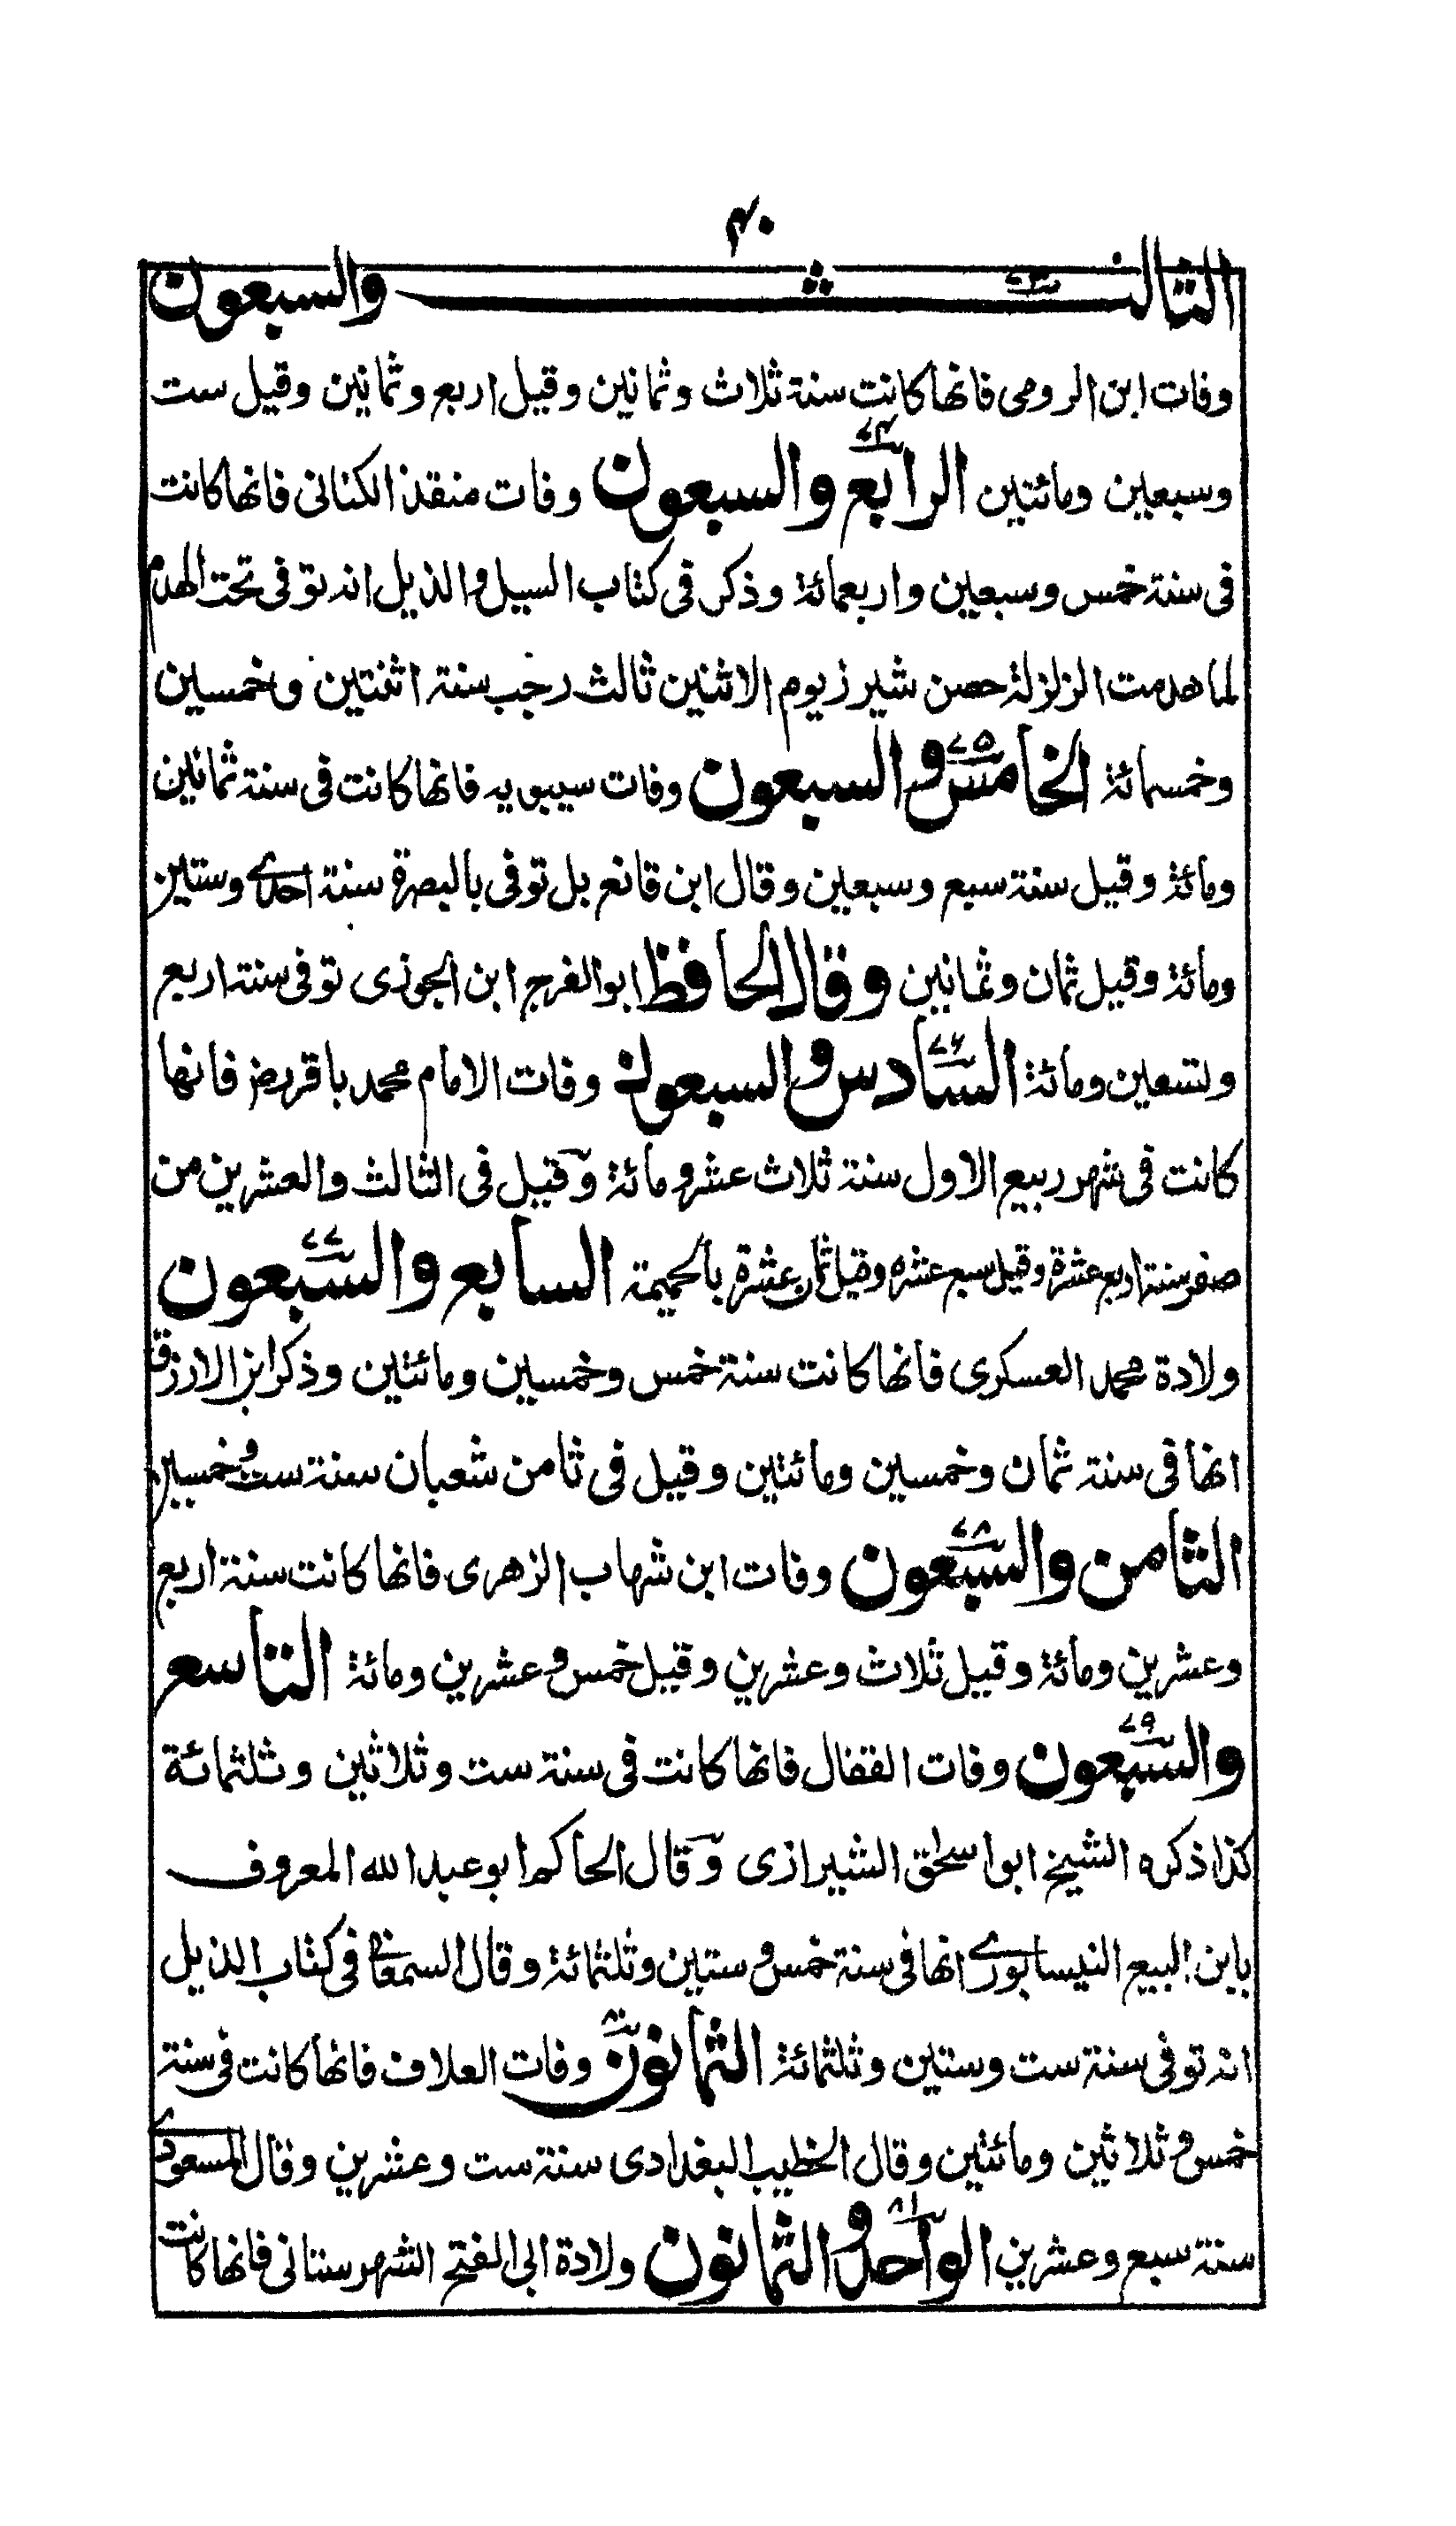 ۴۰
الثالث ۷۳ والسبعون
وفات ابن الرومی فانها کانت سنة ثلاث وثمانین وقیل اربع وثمانین وقیل ست
وسبعین ومائتین الرابع والسبعون ۷۴ وفات منقذ الکنانی فانها کانت
فی سنة خمس وسبعین واربعمائة وذکر فی کتاب السیل والذیل انه توفی تحت الهدم
لما هدمت الزلزلة حصن شیرز یوم الاثنین ثالث رجب سنة اثنتین وخمسین
وخمسمائة الخامس والسبعون ۷۵ وفات سیبویه فانها کانت فی سنة ثمانین
ومائة وقیل سنة سبع وسبعین وقال ابن قانع بل توفی بالبصرة سنة احدی وستین
ومائة وقیل ثمان وثمانین وقال الحافظ ابو الفرج ابن الجوزی توفی سنة اربع
وتسعین ومائة السادس والسبعون ۷۶ وفات الامام محمد باقر رض فانها
کانت فی شهر ربیع الاول سنة ثلاث عشر ومائة وقیل فی الثالث والعشرین من
صفر سنة اربع عشرة وقیل سبع عشره وقیل ثمان عشرة بالحمیمة السابع والسبعون ۷۷
ولادة محمد العسکری فانها کانت سنة خمس وخمسین ومائتین وذکر ابن الارزق
انها فی سنة ثمان وخمسین ومائتین وقیل فی ثامن شعبان سنة ست وخمسین
الثامن والسبعون ۷۸ وفات ابن شهاب الزهری فانها کانت سنة اربع
وعشرین ومائة وقیل ثلاث وعشرین وقیل خمس وعشرین ومائة التاسع
والسبعون ۷۹ وفات القفال فانها کانت فی سنة ست وثلاثین وثلثمائة
کذا ذکره الشیخ ابو اسحق الشیرازی وقال الحاکم ابو عبد الله المعروف
باین البیع النیسابوری انها فی سنة خمس وستین وثلثمائة وقال السمعانی فی کتاب الذیل
انه توفی سنة ست وستین وثلثمائة الثمانون ۸۰ وفات العلاف فانها کانت فی سنة
خمس وثلاثین ومائتین وقال الخطیب البغدادی سنة ست وعشرین وقال المسعودی
سنة سبع وعشرین الواحد والثمانون ۸۱ ولادة ابی الفتح الشهرستانی فانها کانت